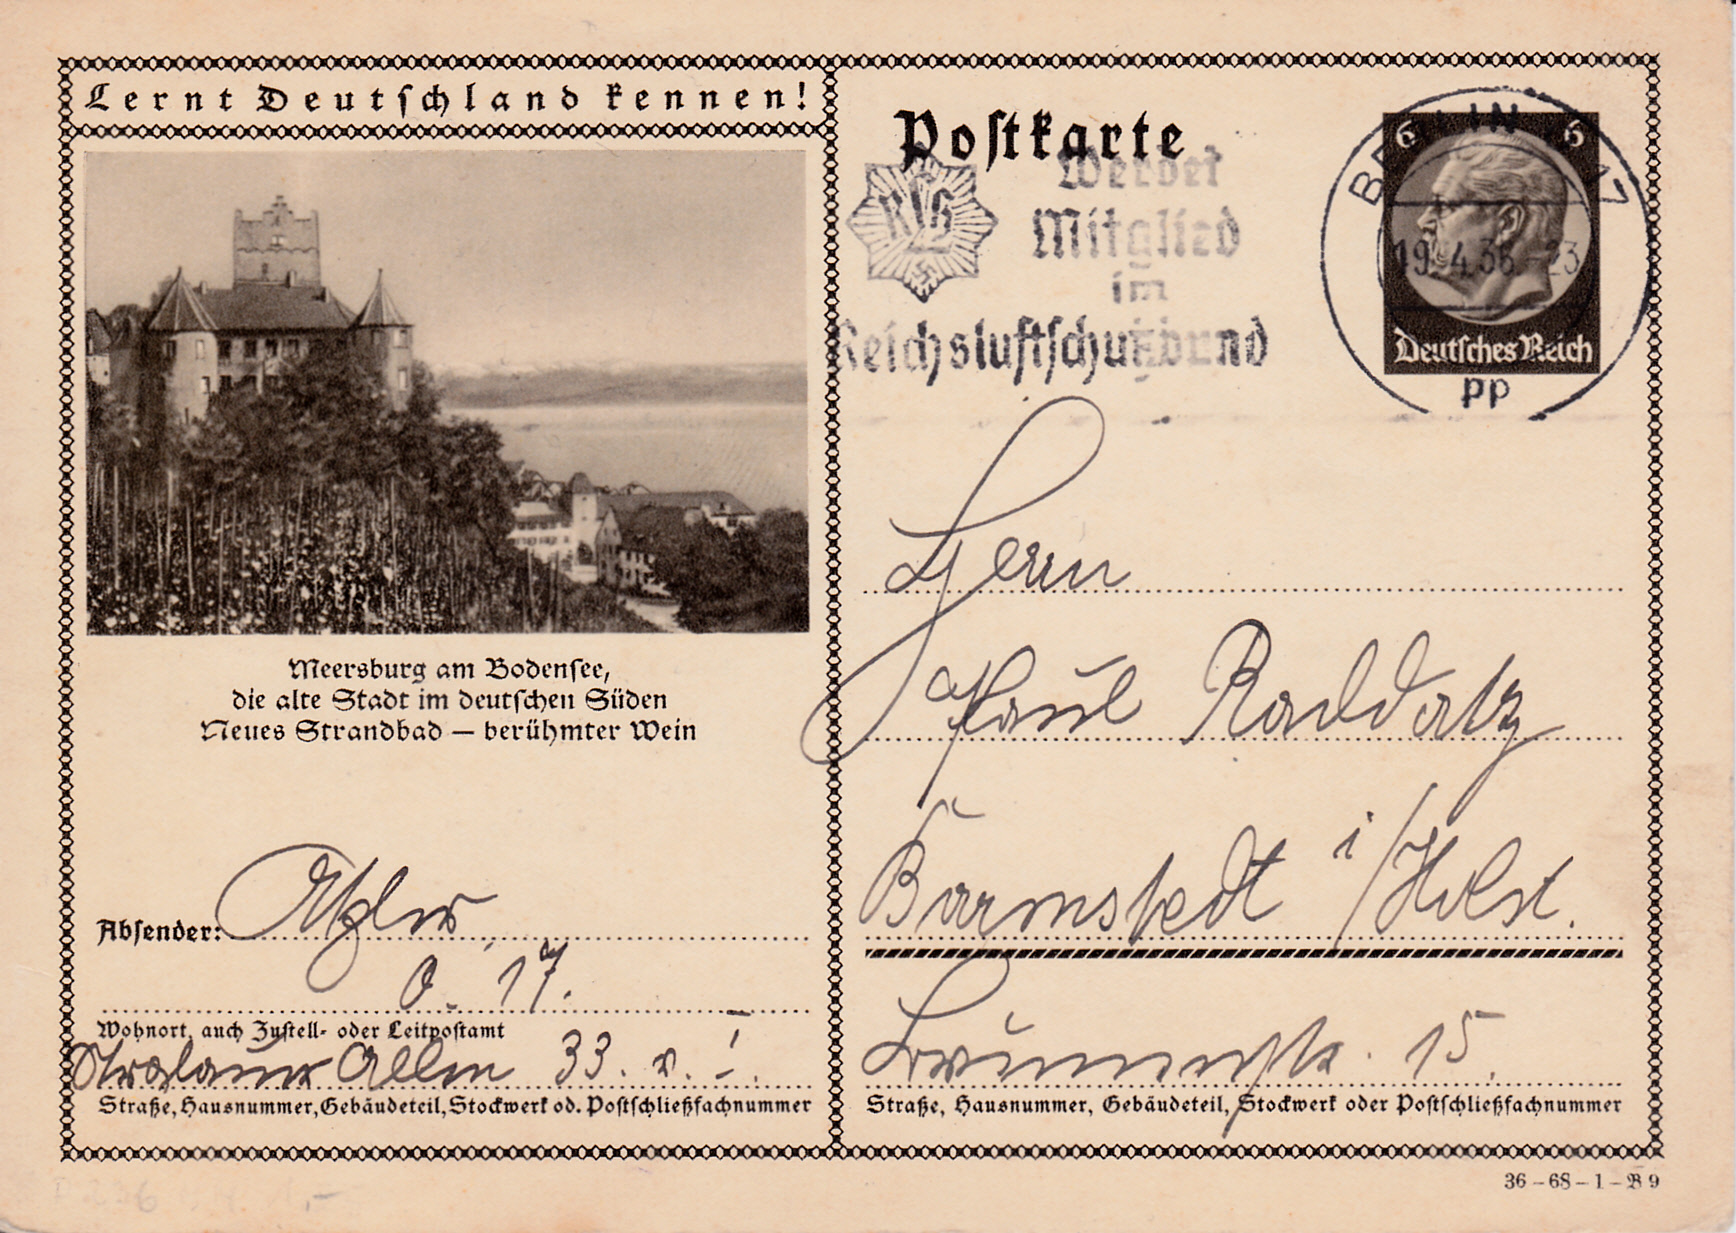 Lernt Deutschland kennen!
Meersburg am Bodensee,
die alte Stadt im deutschen Süden
Neues Strandbad — berühmter Wein
Absender:
O. 17.
Wohnort, auch Zustell- oder Leitpostamt
Stralauer Allee 33. v. I.
Straße, Hausnummer, Gebäudeteil, Stockwerk od. Postschließfachnummer
Postkarte
RLB
Werdet
Mitglied
im
Reichsluftschutzbund
BERLIN
19.4.36. 23
pp
6 6
Deutsches Reich
Herrn
Paul Raddatz
Barmstedt i/Holst.
15.
Straße, Hausnummer, Gebäudeteil, Stockwerk oder Postschließfachnummer
36–68–1–B 9